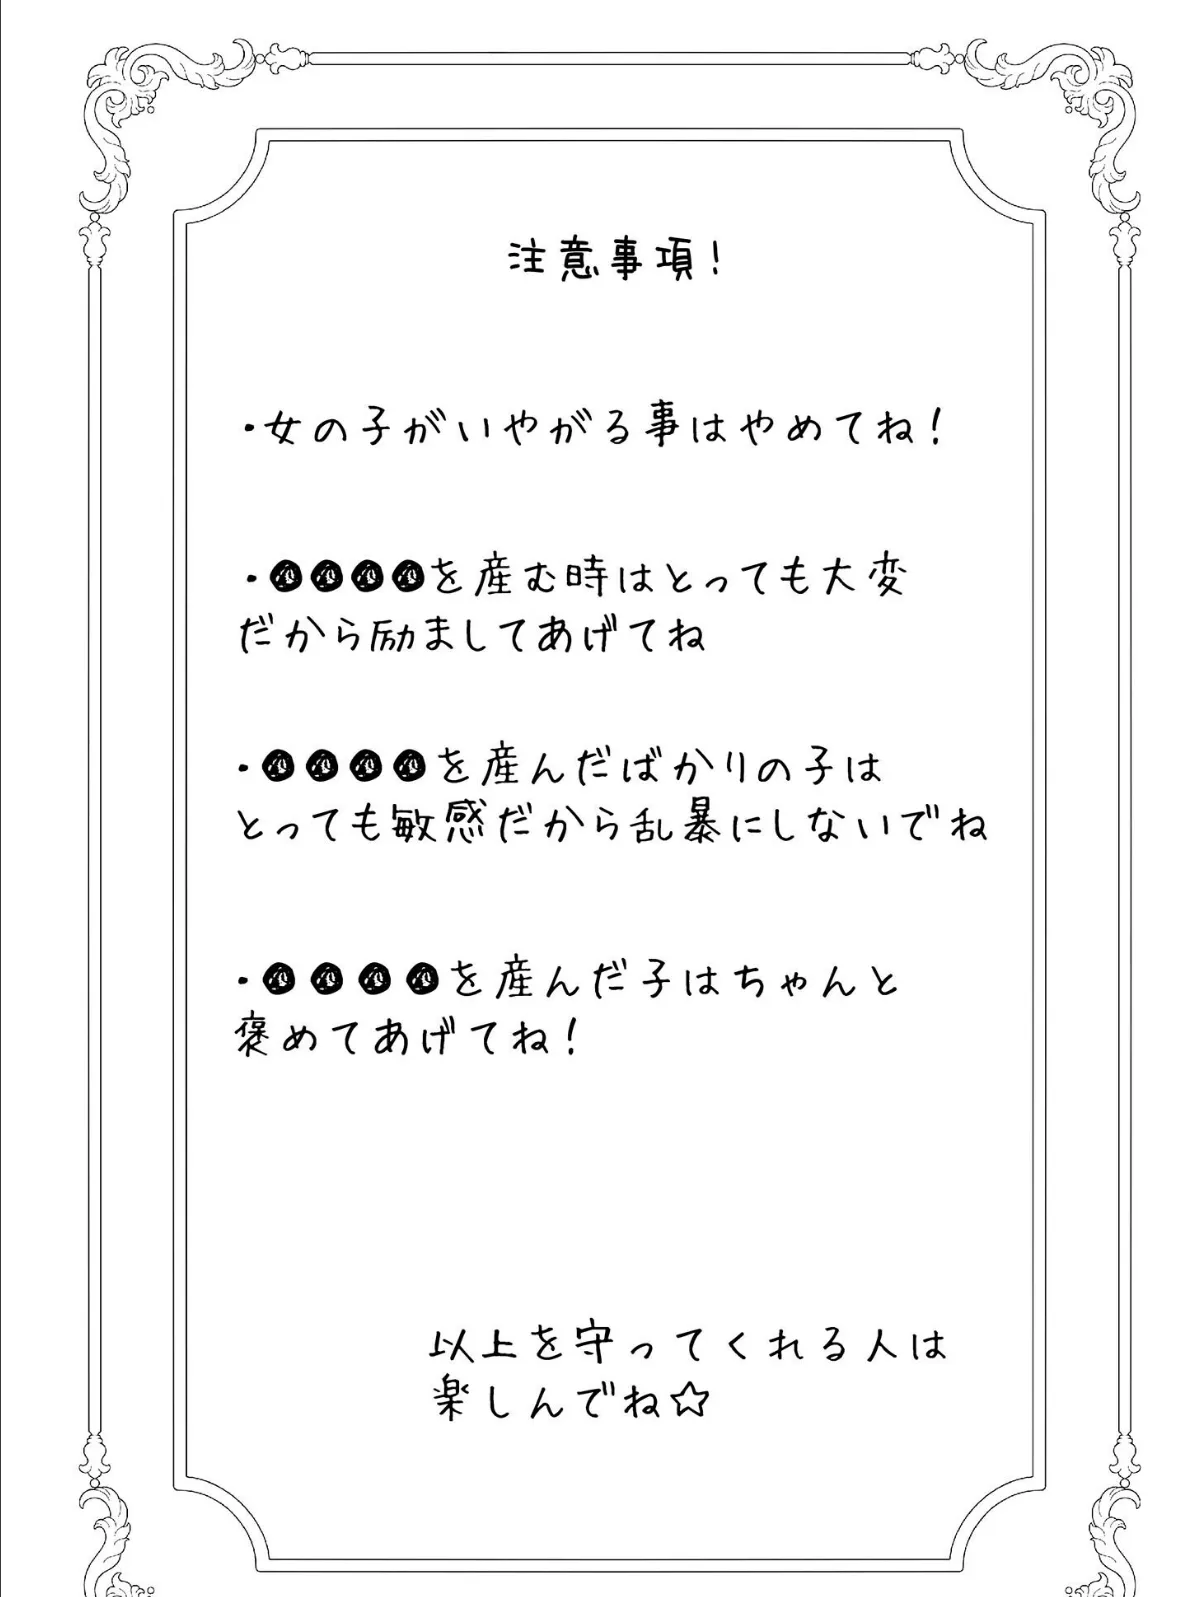 注意事項！
・女の子がいやがる事はやめてね！
・●●●●を産む時はとっても大変
だから励ましてあげてね
・●●●●を産んだばかりの子は
とっても敏感だから乱暴にしないでね
・●●●●を産んだ子はちゃんと
褒めてあげてね！
以上を守ってくれる人は
楽しんでね☆